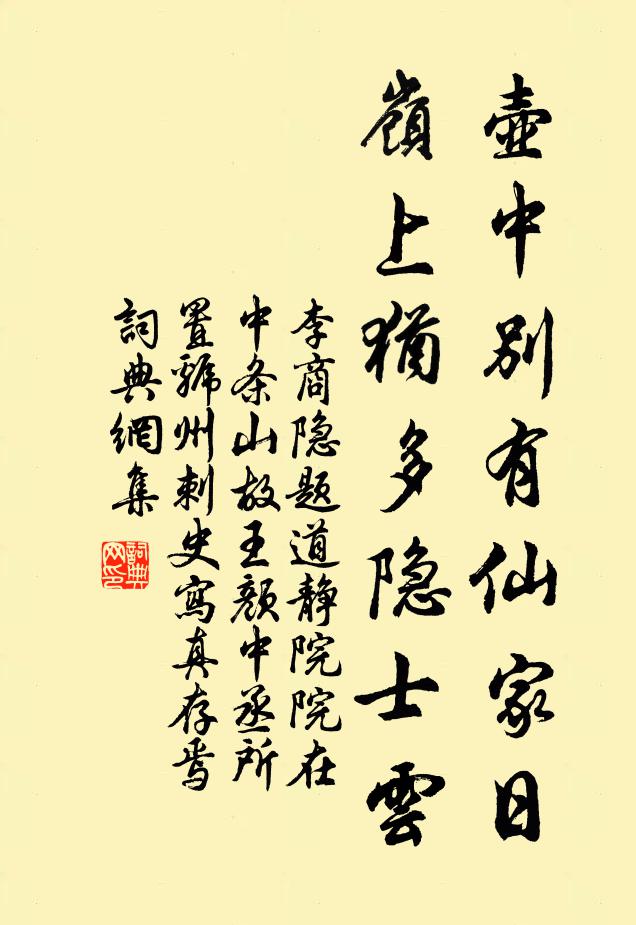 壺中別有仙家日
嶺上猶多隐士雲
李商隐題道静院院在
中条山故王顏中丞所
置虢州刺史寫真存焉
詞典網集
詞典
网印